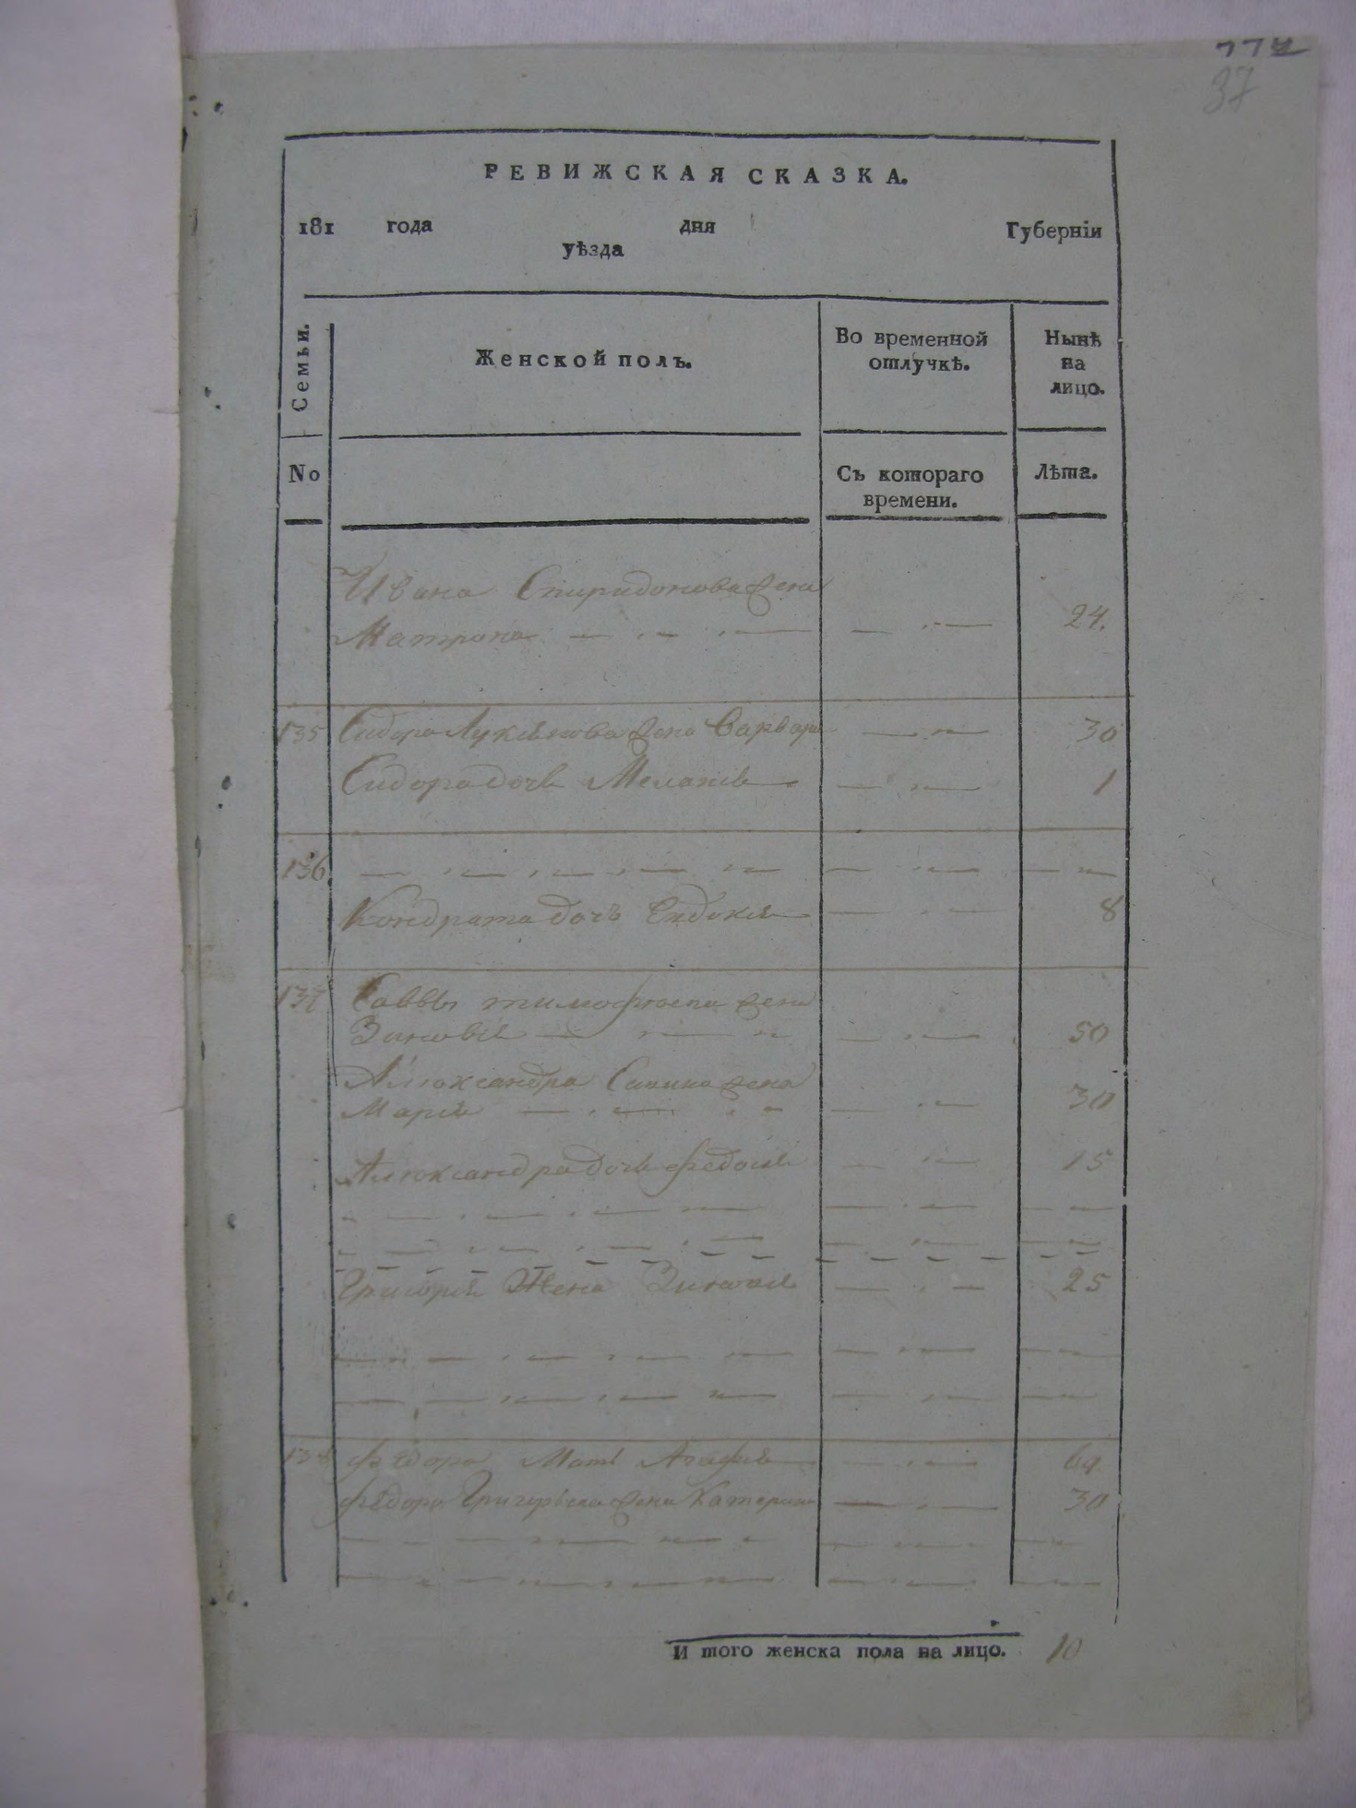 774
37
РЕВИЖСКАЯ СКАЗКА.
181 года дня Губерніи
уѣзда
Семьи.
Женской полъ.
Во временной отлучкѣ.
Нынѣ на лицо.
No
Съ котораго времени.
Лѣта.
Ивана Спиридонова жена
Матрона 24.
135 Сидора Лукьянова жена Варвара 30
Сидора дочь Меланія 1
136
Кондрата дочь Евдокія 8
137 Саввы тимофѣева жена
Зиновія 50
Алюксандра Савина жена
Марія 30
Алюксандра дочь Федосія 15
Григорія Жена Зиновія 25
138 Федора Мать Агафія 69
Федора Григорьева жена Катерина 30
И того женска пола на лицо. 10